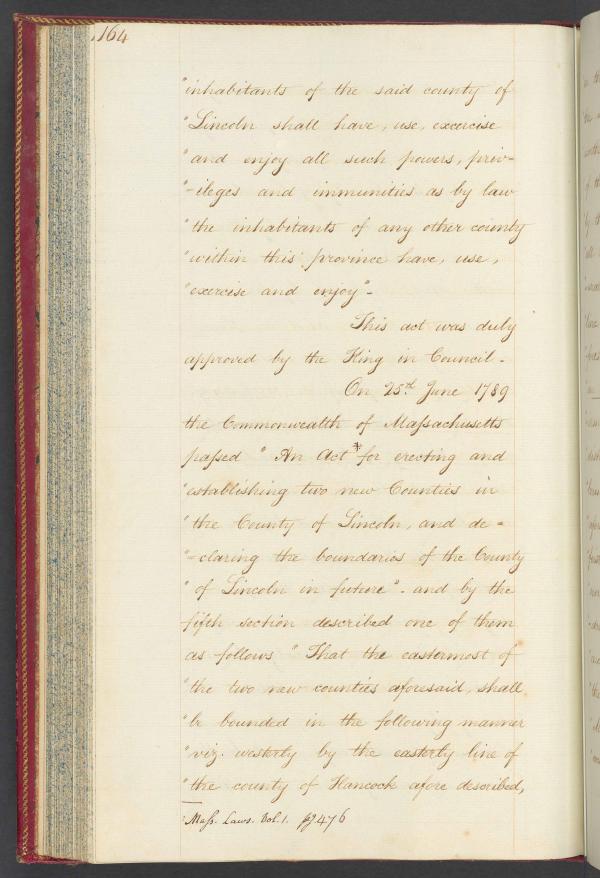 164
"inhabitants of the said county of
"Lincoln shall have, use, excercise
"and enjoy all such powers, priv-
"-ileges and immunities as by law
"the inhabitants of any other county
"within this province have, use,
"exercise and enjoy"-
This act was duly
approved by the King in Council.
On 25th June 1789
the Commonwealth of Massachusetts
passed "An Act * for erecting and
"establishing two new Counties in
"the County of Lincoln, and de-
"-claring the boundaries of the County
"of Lincoln in future". and by the
fifth section described one of them
as follows "That the eastermost of
"the two new counties aforesaid, shall
"be bounded in the following manner
"viz. westerly by the easterly line of
"the county of Hancock afore described,
Mass. Laws. Vol. 1. pg 476